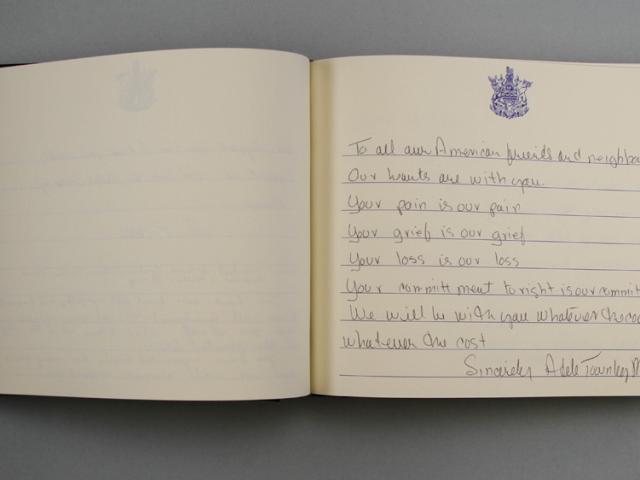 To all our American friends and neighbo
Our hearts are with you.
Your pain is our pain
Your grief is our grief
Your loss is our loss
Your committment to right is our commit
We will be with you whatever the
whatever the cost
Sincerely Adele Townley